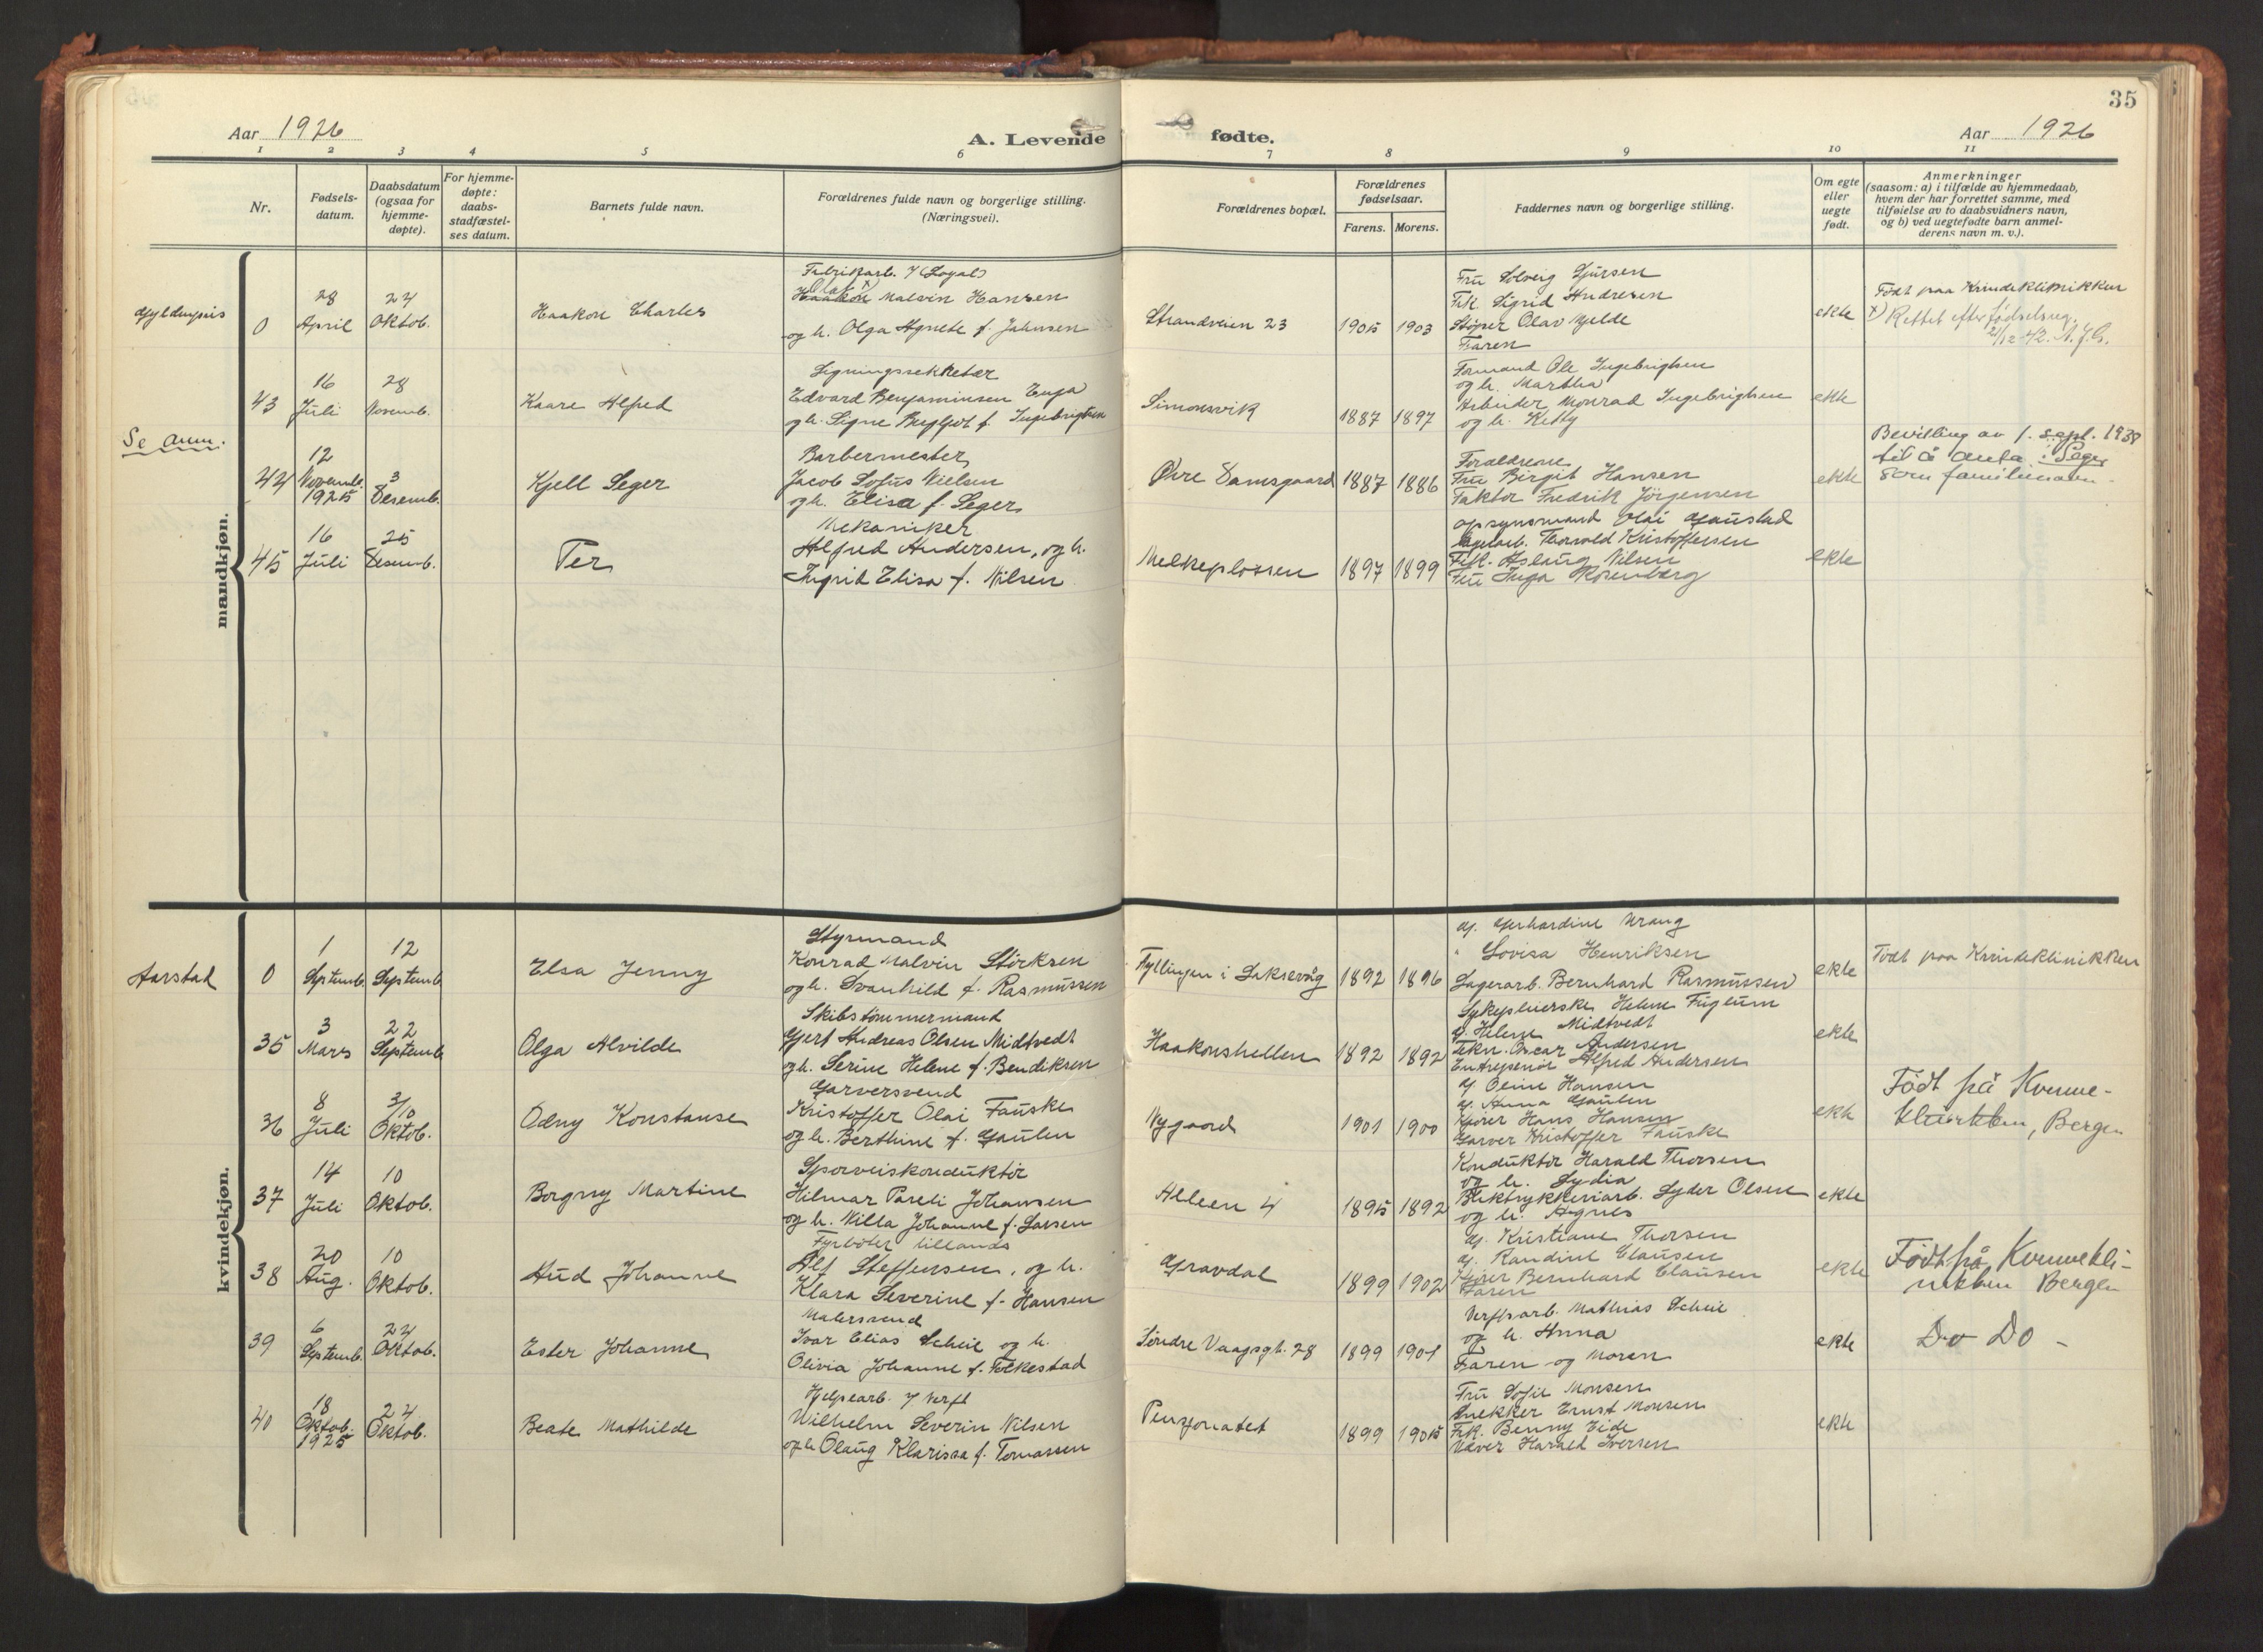 35
Aar 1926
A. Levende
fødte.
Aar 1926
1 2 3 4 5 6 7 8 9 10 11
Nr.
Fødsels-
datum.
Daabsdatum
(ogsaa for
hjemme-
døpte).
For hjemme-
døpte:
daabs-
stadfæstel-
ses datum.
Barnets fulde navn.
Forældrenes fulde navn og borgerlige stilling.
(Næringsvei).
Forældrenes bopæl.
Forældrenes
fødselsaar.
Farens. Morens.
Faddernes navn og borgerlige stilling.
Om egte
eller
uegte
født.
Anmerkninger
(saasom: a) i tilfælde av hjemmedaab,
hvem der har forrettet samme, med
tilføielse av to daabsvidners navn,
og b) ved uegtefødte barn anmel-
derens navn m. v.).
mandkjøn.
Gyldenpris
0
28
April
24
Oktob.
Haakon Charles
Fabrikarb. 7 (Loyal)
Olaf x)
Haakon Malvin Hansen
og h. Olga Agnete f. Jahnsen
Strandveien 23
1905 1903
Fru Solveig Sjursen
Frk. Sigrid Andresen
Støper Olav Mjelde
Faren
ekte
Født paa Kvindeklinikken
x) Rettet efter fødselsreg.
21/12-42.
43
16
Juli
28
Novemb.
Kaare Alfred
Ligningssekretær
Edvard Benjaminsen Enga
og h. Signe Bergljot f. Ingebrigtsen
Simonsvik
1887 1897
Formand Ole Ingebrigtsen
og h. Martha
Arbeider Monrad Ingebrigtsen
og h. Ketty
ekte
Se anm.
44
12
Novemb.
1925
3
Desemb.
Kjell Seger
Barbermester
Jacob Sofus Nielsen
og h. Elisa f. Seger
Øvre Damsgaard
1887 1886
Forældrene
Fru Birgit Hansen
Faktor Fredrik Jörgensen
ekte
Bevilling av 1. sept. 1938
til å anta: Seger
som familienavn.
45
16
Juli
25
Desemb.
Per
Mekaniker
Alfred Andersen, og h.
Ingrid Elisa f. Nilsen
Melkeplassen
1897 1899
Opsynsmand Olai Gaustad
Lagerarb. Thorvald Kristoffersen
Frk. Aslaug Nilsen
Fru Inga Rosenberg
ekte
kvindekjøn.
Aarstad
0
1
Septemb.
12
Septemb.
Elsa Jenny
Styrmand
Konrad Malvin Störksen
og h. Svanhild f. Rasmussen
Fyllingen i Laksevåg
1892 1896
G. Gerhardine Krang
" Lovisa Henriksen
Lagerarb. Bernhard Rasmussen
ekte
Født paa Kvindeklinikken
35
3
Mars
22
Septemb.
Olga Alvilde
Skibstømmermand
Gjert Andreas Olsen Midtvedt
og h. Serine Helene f. Bendiksen
Haakonshellen
1892 1892
Sykepleierske Helene Fuglum
G. Helene Midtvedt
Tekn. Oscar Andersen
Entreprenör Alfred Andersen
ekte
36
8
Juli
3/10
Oktob.
Odny Konstanse
Garversvend
Kristoffer Olai Fauske
og h. Berthine f. Gaulen
Nygaard
1901 1900
G. Oline Hansen
G. Anna Gaulen
Kjører Hans Hansen
Garver Kristoffer Fauske
ekte
Født på Kvinne-
klinikken, Bergen
37
14
Juli
10
Oktob.
Borgny Martine
Sporveiskonduktör
Hilmar Pareli Johansen
og h. Milla Johanne f. Larsen
Alleen 4
1895 1892
Konduktör Harald Thorsen
og h. Lydia
Bliktrykkeriarb. Lyder Olsen
og h. Agnes
ekte
38
20
Aug.
10
Oktob.
Aud Johanne
Fyrböter tillands
Alf Steffensen, og h.
Klara Severine f. Hansen
Gravdal
1899 1902
G. Kristiane Thorsen
G. Randine Clausen
Kjører Bernhard Clausen
Faren
ekte
Født på Kvinnekli-
nikken Bergen
39
6
Septemb.
24
Oktob.
Ester Johanne
Malersvend
Ivar Elias Scheie og h.
Olivia Johanne f. Folkestad
Søndre Vaagsgt. 28
1899 1901
Verftsarb. Mathias Scheie
og h. Anna
Faren og Moren
ekte
Do Do -
40
18
Oktob.
1925
24
Oktob.
Beate Mathilde
Hjelpearb. 7 Verft
Wilhelm Severin Nilsen
og h. Olaug Klarissa f. Tomassen
Pensjonatet
1899 1905
Fru Sofie Monsen
Snekker Ernst Monsen
Frk. Benny Eide
Væver Harald Iversen
ekte